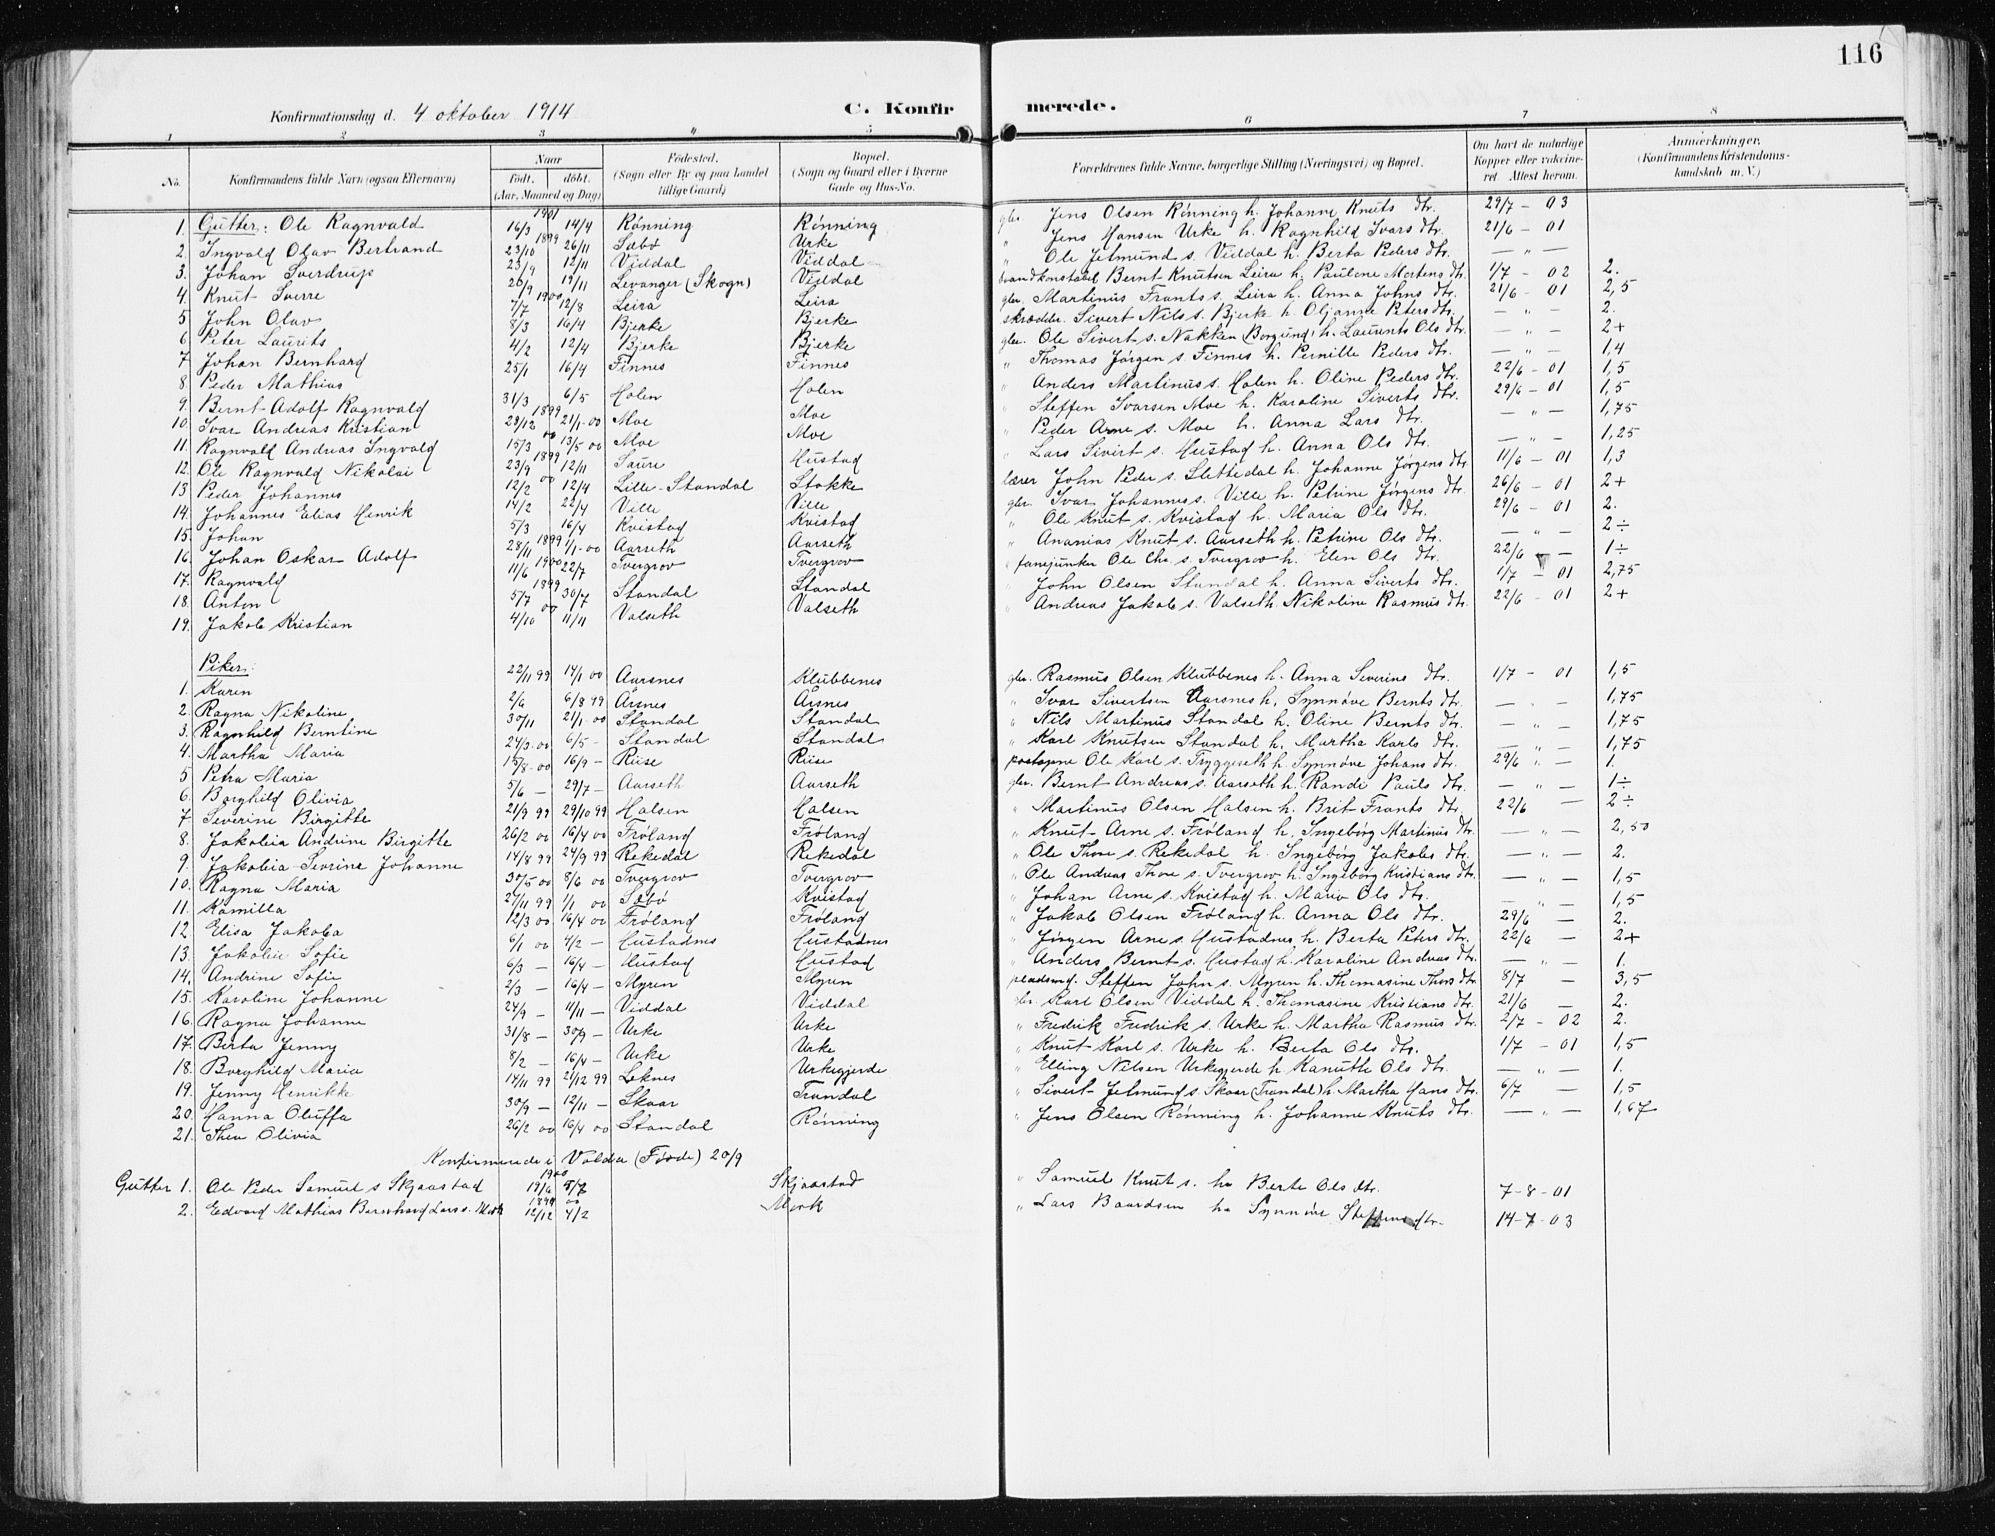 116
Konfirmationsdag d. 4 oktober 1914
C. Konfirmerede.
1 2 3 4 5 6 7 8
No. Konfirmandens fulde Navn (ogsaa Efternavn) Naar Födt. döbt. (Aar, Maaned og Dag) Födested. (Sogn eller By og paa Landet tillige Gaard) Bopæl. (Sogn og Gaard eller i Byerne Gade og Hus-No. Forældrenes fulde Navne, borgerlige Stilling (Næringsvei) og Bopæl. Om havt de naturlige Kopper eller vakcineret. Attest herom. Anmærkninger. (Konfirmandens Kristendomskundskab m. V.)
1. Gutter: Ole Ragnvald 1901 16/3 14/4 Rönning Rönning gbr. Jens Olsen Rönning h. Johanne Knuts dtr. 29/7 - 03
2. Ingvald Olav Bertrand 1899 23/10 26/11 Sæbö Urke " Jens Hansen Urke h. Ragnhild Ivars dtr. 21/6 - 01
3. Johan Sverdrup 23/9 12/11 Viddal Viddal " Ole Jetmund s. Viddal h. Berta Peders dtr. — " —
4. Knut Sverre 26/9 19/11 Levanger (Skogn) Viddal Bernt Knutsen Leira h. Paulene Mortens dtr. 1/7 - 02 2.
5 John Olav 1900 7/7 12/8 Leira Leira gbr. Martinus Frants s. Leira h. Anna Johns dtr. 21/6 - 01 2,5
6 Peter Laurits 8/3 16/4 Bjerke Bjerke skrædder. Sivert Nils s. Bjerke h. Oljanna Peters dtr. — " — 2.
7 Johan Bernhard 4/2 12/4 Bjerke Bjerke gbr. Ole Sivert s. Nakken (Borgund) h. Laurents Ols dtr. — " — 2+
8 Peder Mathias 25/1 16/4 Finnes Finnes " Thomas Jörgen s. Finnes h. Pernille Peders dtr. — " — 1,4
9. Bernt Adolf Ragnvald 31/3 6/5 Holen Holen " Anders Martinus s. Holen h. Oline Peders dtr. 22/6 - 01 1,5
10. Ivar Andreas Kristian 1899 28/12 21/1-00 Moe Moe " Steffen Ivarsen Moe h. Karoline Siverts dtr. 29/6 - 01 1,5
11. Ragnvald Andreas Ingvald 00 15/3 13/5 00 Moe Moe " Peder Arne s. Moe h. Anna Lars dtr. — " — 1,75
12. Ole Ragnvald Nikolai 1899 23/9 12/11 Saure Hustad " Lars Sivert s. Hustad h. Anna Ols dtr. — " — 1,25
13 Peder Johannes 00 12/2 12/4 Lille-Standal Stokke lærer John Peder s. Slettedal h. Johanne Jörgens dtr. 11/6 - 01 1,3
14. Johannes Elias Henrik 14/2 22/4 Ville Ville gbr. Ivar Johannes s. Ville h. Petrine Jörgens dtr. 26/6 - 01 2+
15. Johan 5/3 16/4 Kvistad Kvistad " Ole Knut s. Kvistad h. Maria Ols dtr. 29/6 - 01 2.
16. Johan Oskar Adolf 1899 28/11 1/1-00 Aarseth Aarseth " Ananias Knut s. Aarseth h. Petrine Ols dtr. — " — 2÷
17. Ragnvald 1900 11/6 22/7 Tvergrov Tvergrov " fanejunker Ole Chr. s. Tvergrov h. Elen Ols dtr. 22/6 — 1÷
18. Anton 1899 5/7 30/7 Standal Standal John Olsen Standal h. Anna Siverts dtr. 1/7 - 01 2,75
19. Jakob Kristian 00 4/10 11/11 Valseth Valseth " Andreas Jakob s. Valseth. Nikoline Rasmus dtr. 22/6 - 01 2+
Piker:
1. Karen 22/11 99 14/1 00 Aarsnes Klubbenes gbr. Rasmus Olsen Klubbenes h. Anna Severins dtr. 1/7 - 01 1,5
2. Ragna Nikoline 2/6 6/8 99 Årsnes Årsnes " Ivar Sivertsen Aarsnes h. Synnöve Bernts dtr. — " — 1,75
3. Ragnhild Berntine 30/11 21/1 00 Standal Standal " Nils Martinus Standal h. Oline Bernts dtr. — " — 1,75
4. Martha Maria 24/3-00 6/5 - Standal Standal " Karl Knutsen Standal h. Martha Karls dtr. — " — 1,75
5 Petra Maria 15/8-00 16/9 - Riise Riise Ole Karl s. Tryggeseth h. Synnöve Johans dtr. 29/6 " — 1.
6. Borghild Olivia 5/6 - 29/7 - Aarseth Aarseth gbr. Bernt Andreas s. Aarseth h. Randi Pauls dtr. — " — 1÷
7 Severine Birgitte 21/9 99 29/10 99 Halsen Halsen " Martinus Olsen Halsen h. Brit Frants dtr. 22/6 — 2÷
8. Jakobia Andrine Birgitte 26/2 00 16/4 00 Fröland Fröland " Knut Arne s. Fröland h. Ingeborg Martinus dtr. — " — 2,50
9. Jakobia Sevrine Johanne 14/8 99 24/9 99 Rekedal Rekedal " Ole Thore s. Rekedal h. Ingebörg Jakobs dtr. — " — 2.
10. Ragna Maria 30/5 00 8/6 00 Tvergrov Tvergrov " Ole Andreas Thore s. Tvergrov h. Ingeborg Kristians dtr. — " — 1,5
11. Kamilla 27/11 99 1/1 00 Sæbö Kvistad " Johan Arne s. Kvistad h. Maria Ols dtr. — " — 1,5
12 Elisa Jakoba 12/3 00 16/4 00 Fröland Fröland " Jakob Olsen Fröland h. Anna Ols dtr. 29/6 — 2.
13. Jakobia Sofie 6/1 00 4/2 - Hustadnes Hustadnes " Jörgen Arne s. Hustadnes h. Berta Peters dtr. 22/6 — 2+
14. Andrine Sofie 6/3 - 16/4 - Hustad Hustad " Anders Bernt s. Hustad h. Karoline Andreas dtr. — " — 1.
15. Karoline Johanne 2/3 - 16/4 - Myren Myren pladsmd. Steffen John s. Myren h. Thomasine Thors dtr. 8/7 — 3,5
16. Ragna Johanne 24/9 - 11/11 - Viddal Viddal gbr. Karl Olsen Viddal h. Thomasine Kristians dtr. 21/6 — 2.
17. Berta Jenny 31/8 - 30/9 - Urke Urke " Fredrik Fredrik s. Urke h. Martha Rasmus dtr. 2/7 - 02 2.
18. Borghild Maria 8/2 - 16/4 - Urke Urke " Knut Karl s. Urke h. Berta Ols dtr. 1/7 - 01 1,5
19. Jenny Henrikke 14/11 99 21/12 99 Leknes Urkegjerde " Elling Nilsen Urkegjerde h. Kanutte Ols dtr. — " — 1.
20. Hanna Oluffa 30/9 - 12/11 - Skaar Trandal " Sivert Jetmund s. Skaar (Trandal) h. Martha Hans dtr. 6/7 — 1,5
21. Thea Olivia 26/2 00 16/4 00 Standal Rönning " Jens Olsen Rönning h. Johanne Knuts dtr. — " — 1,67
Konfirmerede i Volda (Förde) 20/9
Gutter 1. Ole Peder Samuel s Skjaastad 1900 19/6 5/7 Skjaastad " Samuel Knut s. ho Berte Ols dtr. 7-8-01
2. Edvard Mathias Bernhard Lars s. Mork 1899 12/12 00 4/2 Mork " Lars Baardsen ho Synnöve Steffens dtr. 14-7-03